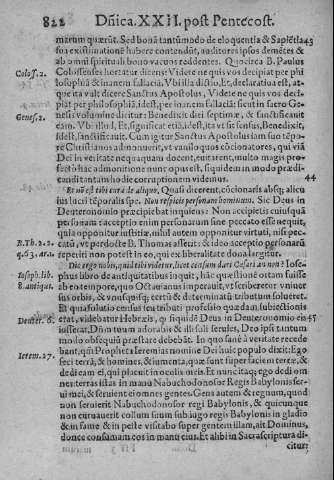 822 Dñica. XXII. post Pentecost.
marum quærũt. Sed bonâ tantũmodo de eloquẽtia & Sapiẽtia 43
sua existimationẽ habere contendũt, auditores ipsos demẽtes &
ab omni spirituali bono vacuos reddentes. Quocirca B. Paulus
Coloss. 2. Colossenses hortatur dicens: Videte ne quis vos decipiat per phi
losophiã & inanem fallaciã. Vbi illa dictio, Et, declarativa est, at-
que ita valt dicere Sanctus Apostolus, Videte ne quis vos deci-
piat per philosophiã, idest, per inanem fallaciã: sicut in sacro Ge-
Genes. 2. nesis volumine dicitur: Benedixit diei septimæ, & sanctificavit
eam. Vbi illud, Et, significat etiã, idest, ita vt sit sensus, Benedixit,
idest, sanctificavit. Cum igitur Sanctus Apostolus iam suo tẽpo-
re Christianos admonuerit, vt vaniloquos cõcionatores, qui viã
Dei in veritate nequaquam docent, euitarent, multo magis pro-
fecto hac admonitione nunc opus est, siquidem in modo prædi-
candi tantam hodie corruptionem videmus. 44
Et nõ est tibi cura de aliquo. Quasi dicerent, cõcionaris absq; alicu
ius lucri tẽporalis spe. Non respicis personam hominum. Sic Deus in
Deuteronomio præcipiebat inquiens: Non accipietis cuiusquã
personam; acceptio enim personarum sine peccato esse nequit,
quia opponitur iustitiæ, nihil autem opponitur virtuti, nisi pec-
D. Th. 2. 2. catũ, vt perdocte B. Thomas asseuit: & ideo acceptio personarũ
q. 63. ar. 1. reperiri non potest in eo, qui ex liberalitate dona largitur.
Dic ergo nobis, quid tibi videtur, licet censum dari Cæsari an non? Iose-
Ioseph. lib. phus libro de antiquitatibus inquit, hãc quæstionẽ ortam fuisse
8. antiqui. ab eo tempore, quo Octavianus imperauit, vt scriberetur vniuer
sus orbis, & vnusquisq; certũ & determinatũ tributum solueret.
Et quia solutio census seu tributi professio quædam subiectionis
Deuter. 6. erat, videbatur Hebræis, q̃ siquidẽ Deus in Deuteronomio eis 45
iusserat, Dñm tuum adorabis & illi soli seruies, Deo ipsi tantum
modo obsequiũ præstare debebãt. In quo sanè à veritate recede
bant, qm̃ Propheta Ieremias nomine Dei huic populo dixit: Ego
Ierem. 27. feci terrã, & homines, & iumenta, quæ sunt super faciem terræ, &
dedi eam ei, qui placuit in oculis meis. Et nunc itaq; ego dedi om
nes terras istas in manu Nabuchodonosor Regis Babylonis ser-
ui mei, & seruient ei omnes gentes. Gens autem & regnum, quod
non seruierit Nabuchodonosor regi Babylonis, & quicunque
non curuauerit collum suum sub iugo regis Babylonis in gladio
& in fame & in peste visitabo super gentem illam, ait Dominus,
donec consumam eos in manu eius. Et alibi in Sacra scriptura di
citur: